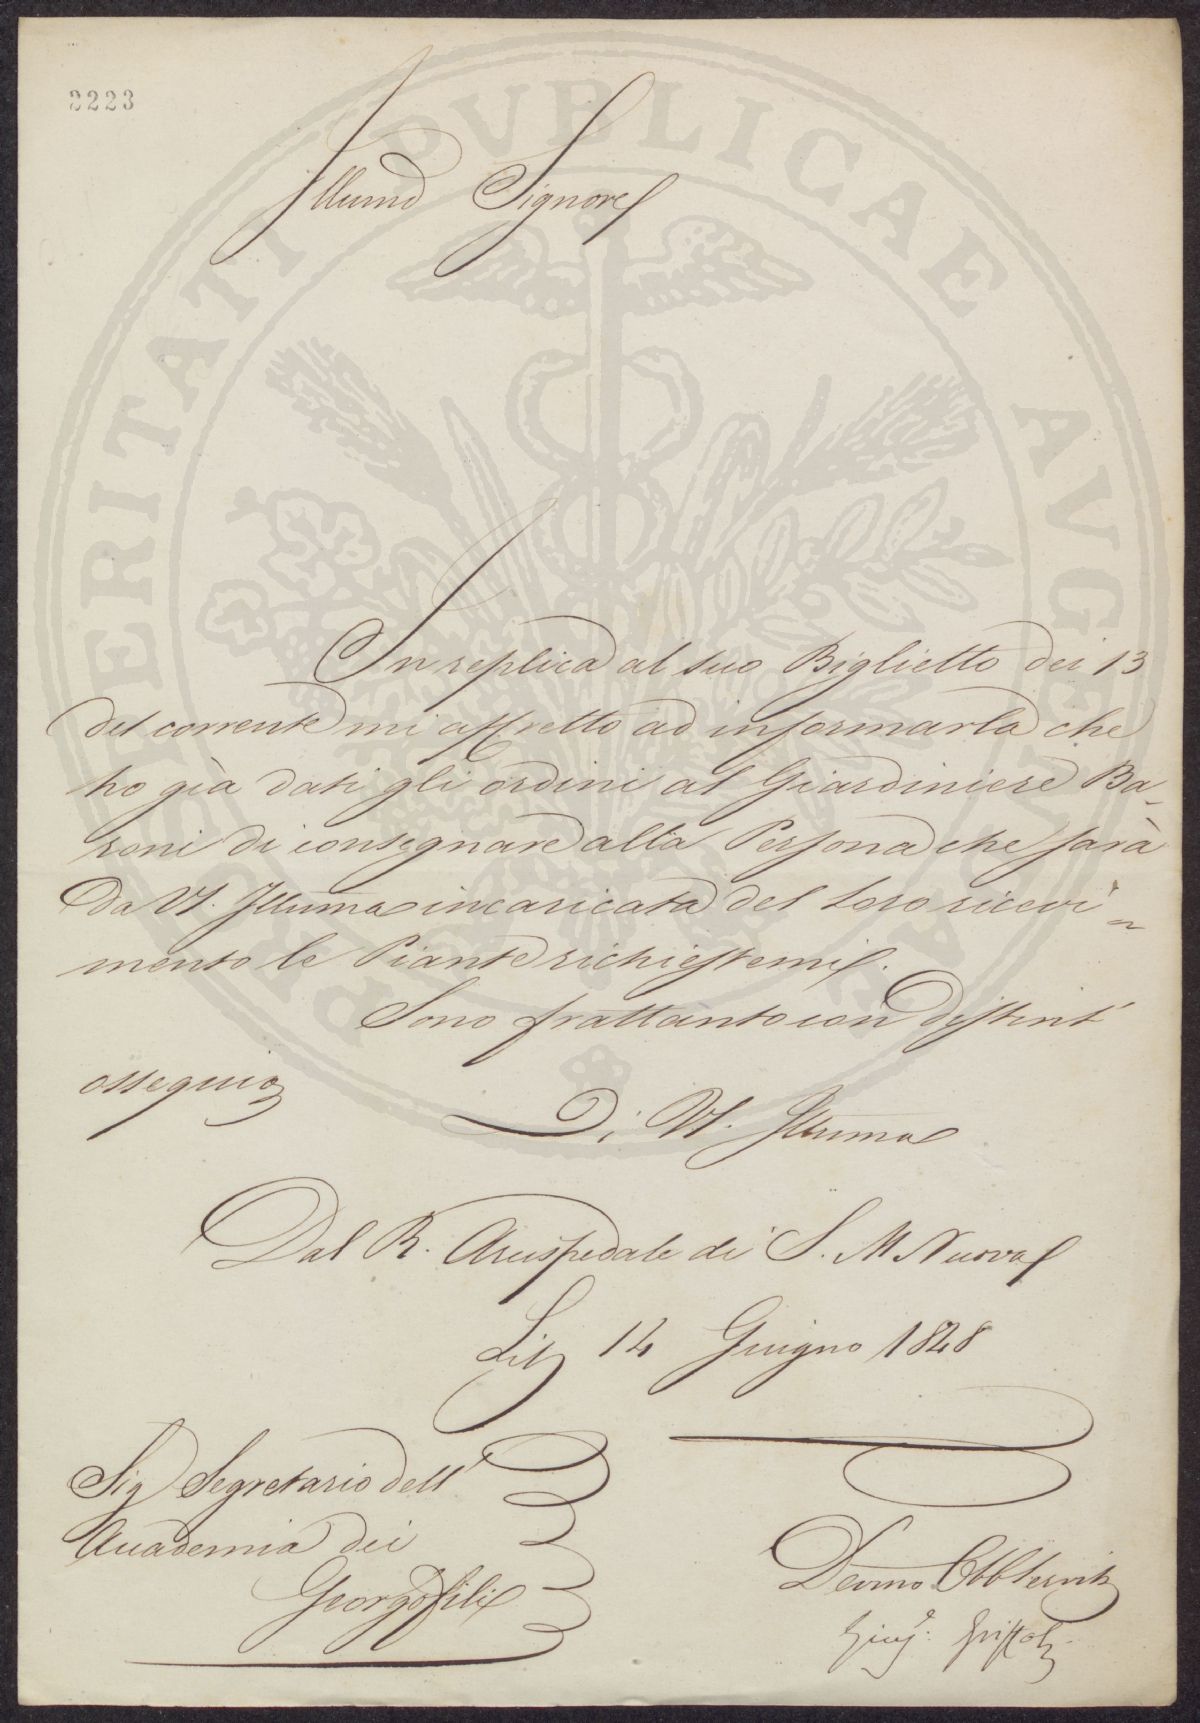 2223
PROSPERITATI PVBLICAE AVGENDAE
Illumo Signore
In replica al suo Biglietto dei 13
del corrente mi affretto ad informarla che
ho già dati gli ordini al Giardiniere Ba-
roni di consegnare alla Persona che sarà
da VS. Illuma incaricata del loro ricevi-
mento le Piante richiestemi.
Sono frattanto con distint'
ossequio
Di VS. Illuma
Dal R. Arcispedale di S. M Nuova
Li 14 Giugno 1828
Sig Segretario dell'
Accademia dei
Georgofili
Devmo Obb Servit